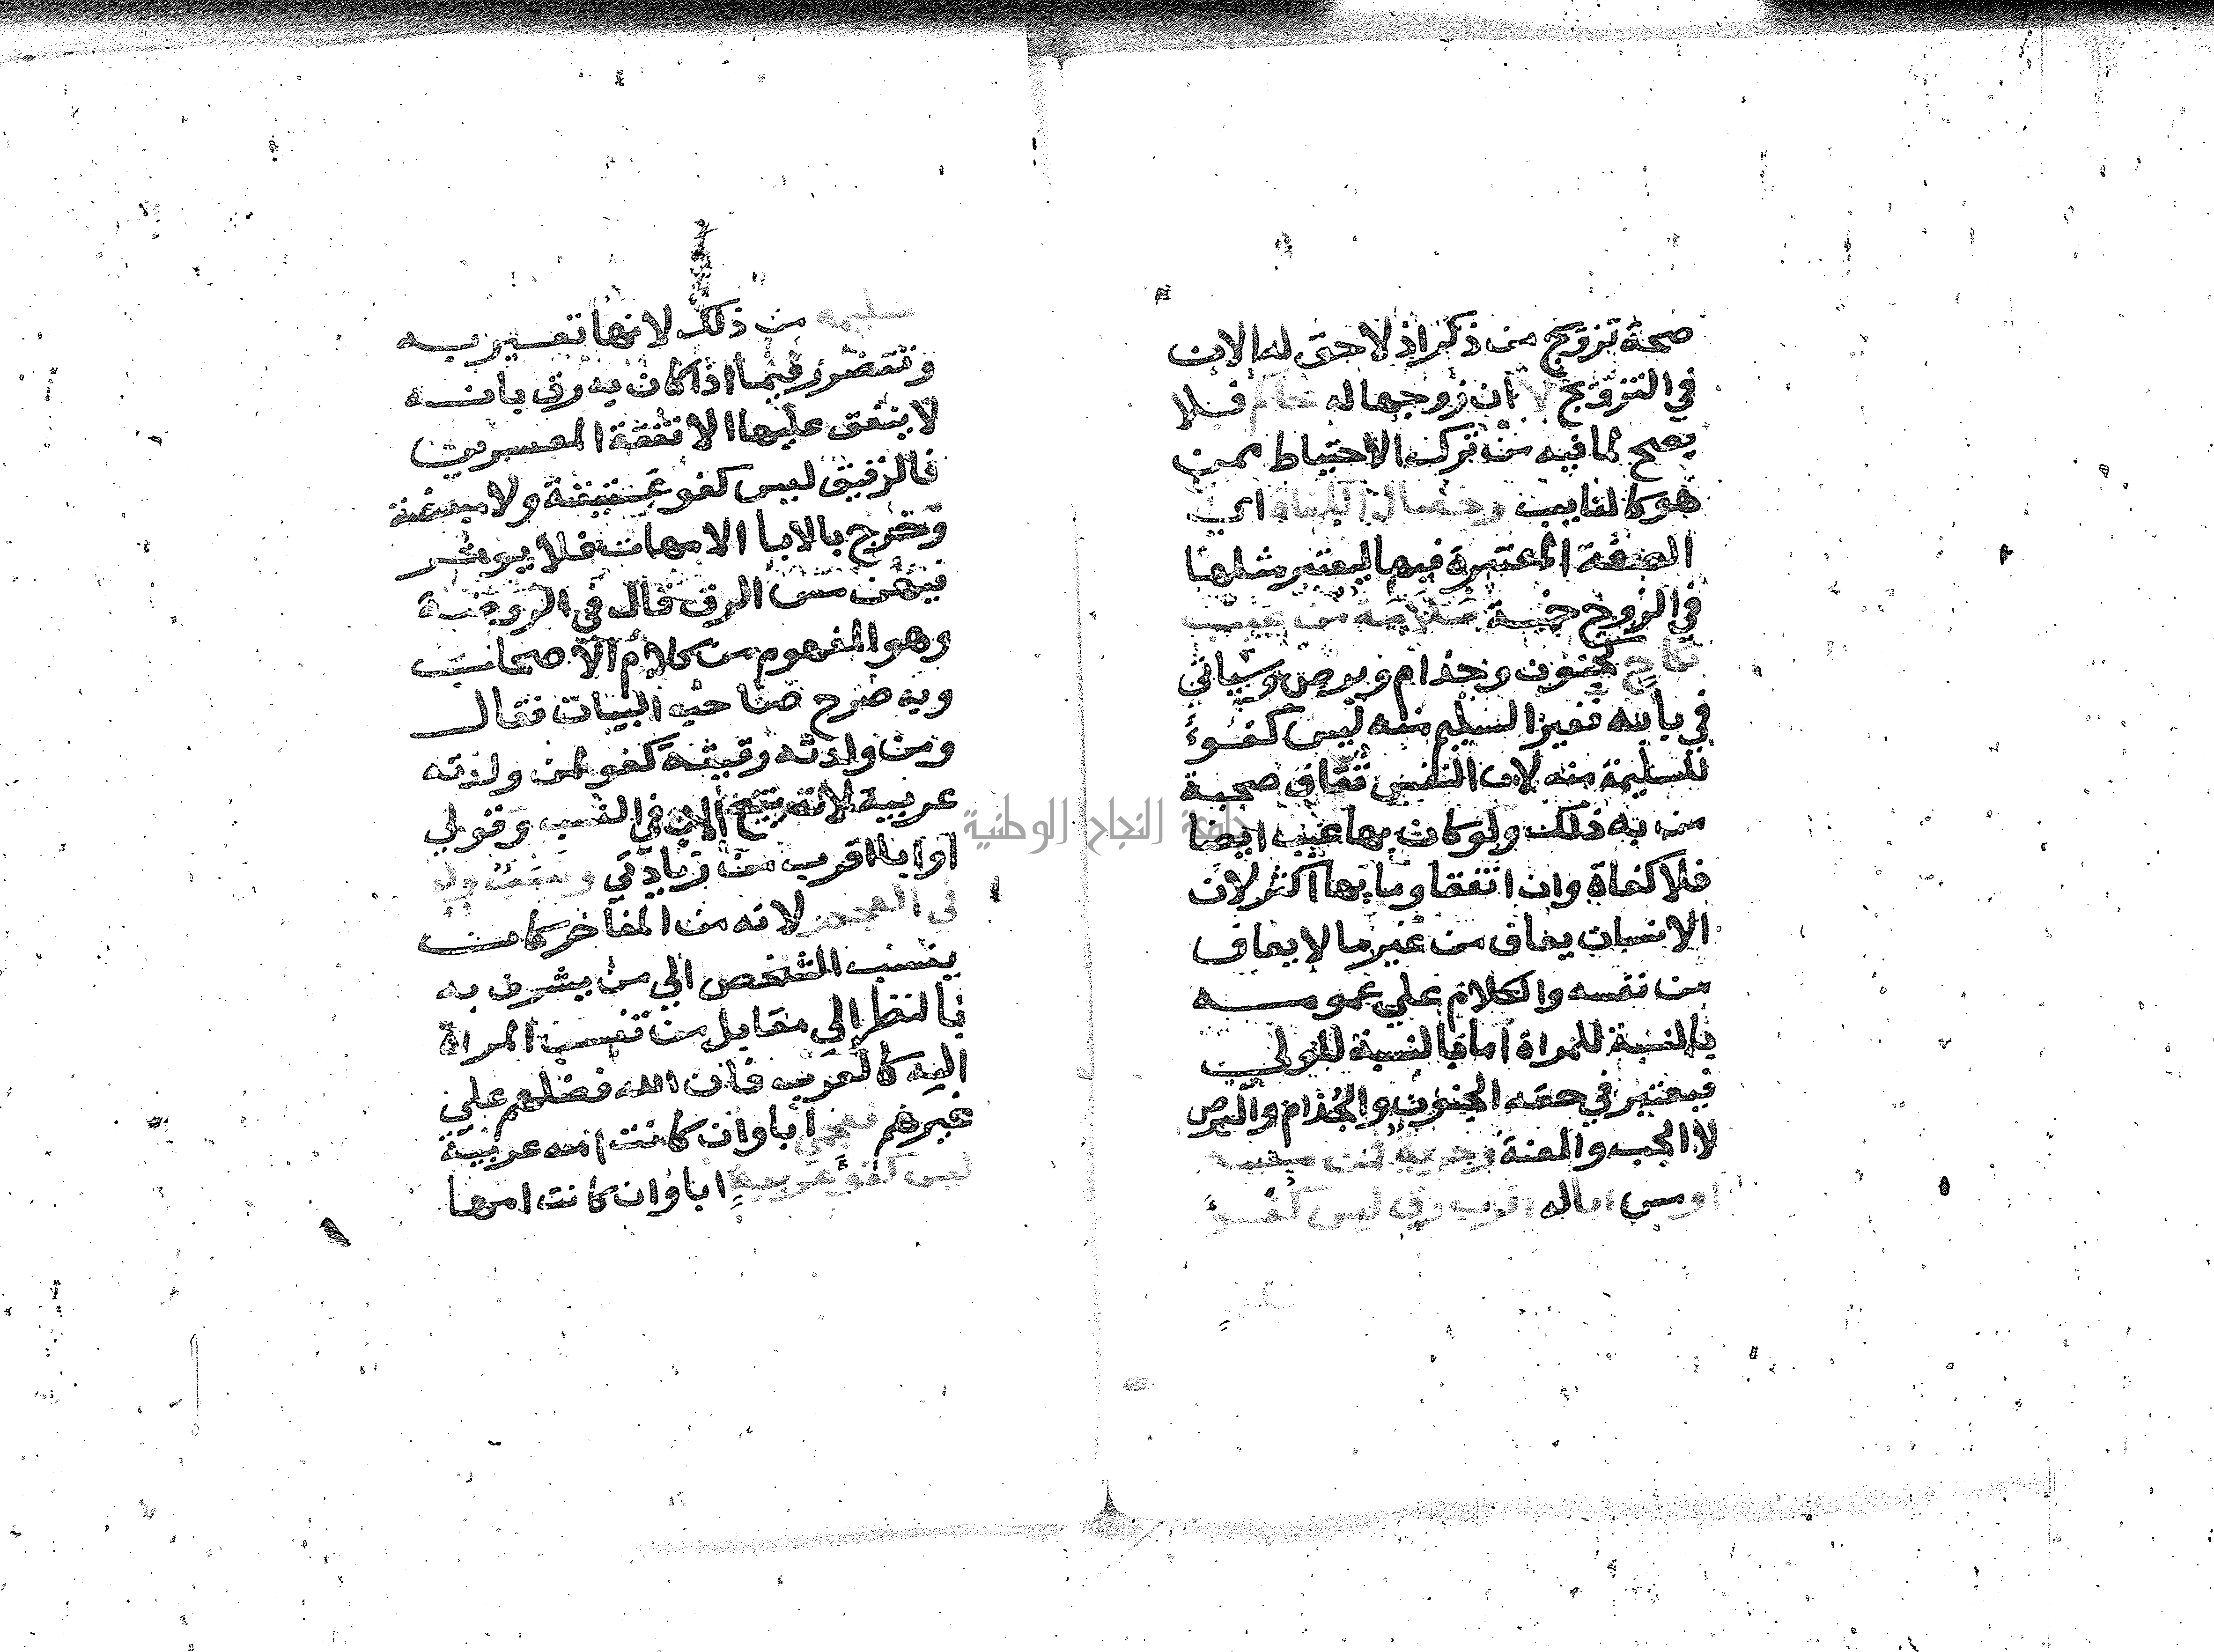 صحة تزوج من ذكر اذ لا حق له الان
في التزوج لا ان زوجها له حاكم فلا
يصح لما فيه من ترك الاحتياط ممن
هو كالنايب وخصال الكفاة اي
الصفة المعتبرة فيها ليعتبر مثلها
في الزوج خمسة سلامة من عيب
نكاح كجنون وجذام وبرص وسياتي
في بابه فغير السليم منه ليس كفوءً
للسليمة منه لان النفس تعاف صحبة
من به ذلك ولو كان بها عيب ايضا
فلا كفاة وان اتفقا وما بها اكثر لان
الانسان يعاف من غيره ما لا يعاف
من نفسه والكلام علي عمومــه
بالنسبة للمراة اما بالنسبة للولي
فيعتبر في حقه الجنون والجذام والبرص
لا الجب والعنة وحرية فمن مسه
او مس ابا له اقرب رق ليس كفــوً
سليمه من ذلك لانها تعير به
وتتضرر فيما اذا كان به رق بانه
لا ينفق عليها الا نفقة المعسرين
فالرقيق ليس كفو عتيقة ولا مبعضة
وخرج بالابا الامهات فلا يوثر
فيهن مس الرق قال في الروضة
وهو المفهوم من كلام الاصحاب
وبه صرح صاحب البيان فقال
ومن ولدته رقيقة كفو لمن ولدته
عربية لانه يتبع الاب في النسب وقولي
او ابا اقرب من زيادتي ونسب ولو
في العجم لانه من المفاخر كان
ينسب الشخص الي من يشرف به
بالنظر الي مقابل من تنسب المراة
اليه كالعرب فان الله فضلهم علي
غيرهم فعجمي ابا وان كانت امه عربية
ليس كفو عربية ابا وان كانت امها
جامعة النجاح الوطنية